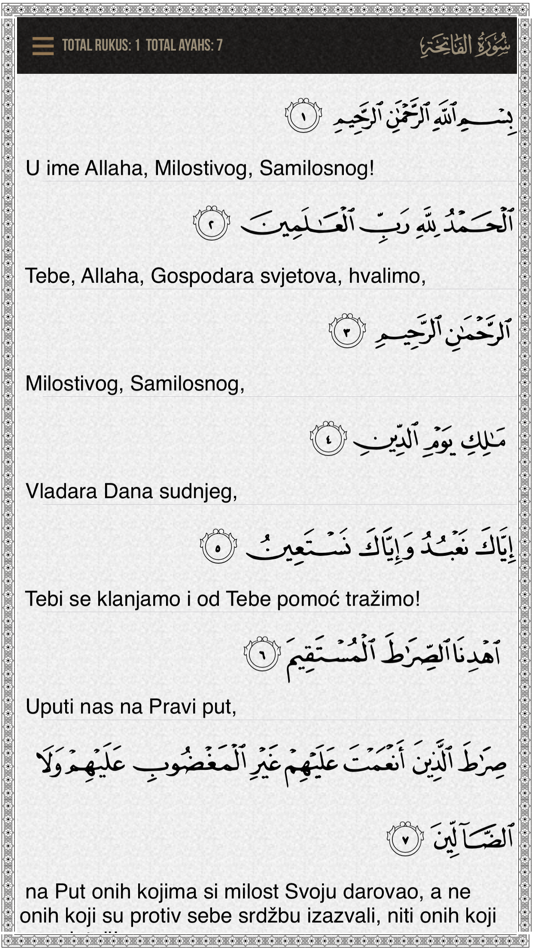 TOTAL RUKUS: 1 TOTAL AYAHS: 7
سُورَةُ الفَاتِحَةِ
بِسْمِ ٱللَّهِ ٱلرَّحْمَٰنِ ٱلرَّحِيمِ ١
U ime Allaha, Milostivog, Samilosnog!
ٱلْحَمْدُ لِلَّهِ رَبِّ ٱلْعَٰلَمِينَ ٢
Tebe, Allaha, Gospodara svjetova, hvalimo,
ٱلرَّحْمَٰنِ ٱلرَّحِيمِ ٣
Milostivog, Samilosnog,
مَٰلِكِ يَوْمِ ٱلدِّينِ ٤
Vladara Dana sudnjeg,
إِيَّاكَ نَعْبُدُ وَإِيَّاكَ نَسْتَعِينُ ٥
Tebi se klanjamo i od Tebe pomoć tražimo!
ٱهْدِنَا ٱلصِّرَٰطَ ٱلْمُسْتَقِيمَ ٦
Uputi nas na Pravi put,
صِرَٰطَ ٱلَّذِينَ أَنْعَمْتَ عَلَيْهِمْ غَيْرِ ٱلْمَغْضُوبِ عَلَيْهِمْ وَلَا
ٱلضَّآلِّينَ ٧
na Put onih kojima si milost Svoju darovao, a ne
onih koji su protiv sebe srdžbu izazvali, niti onih koji